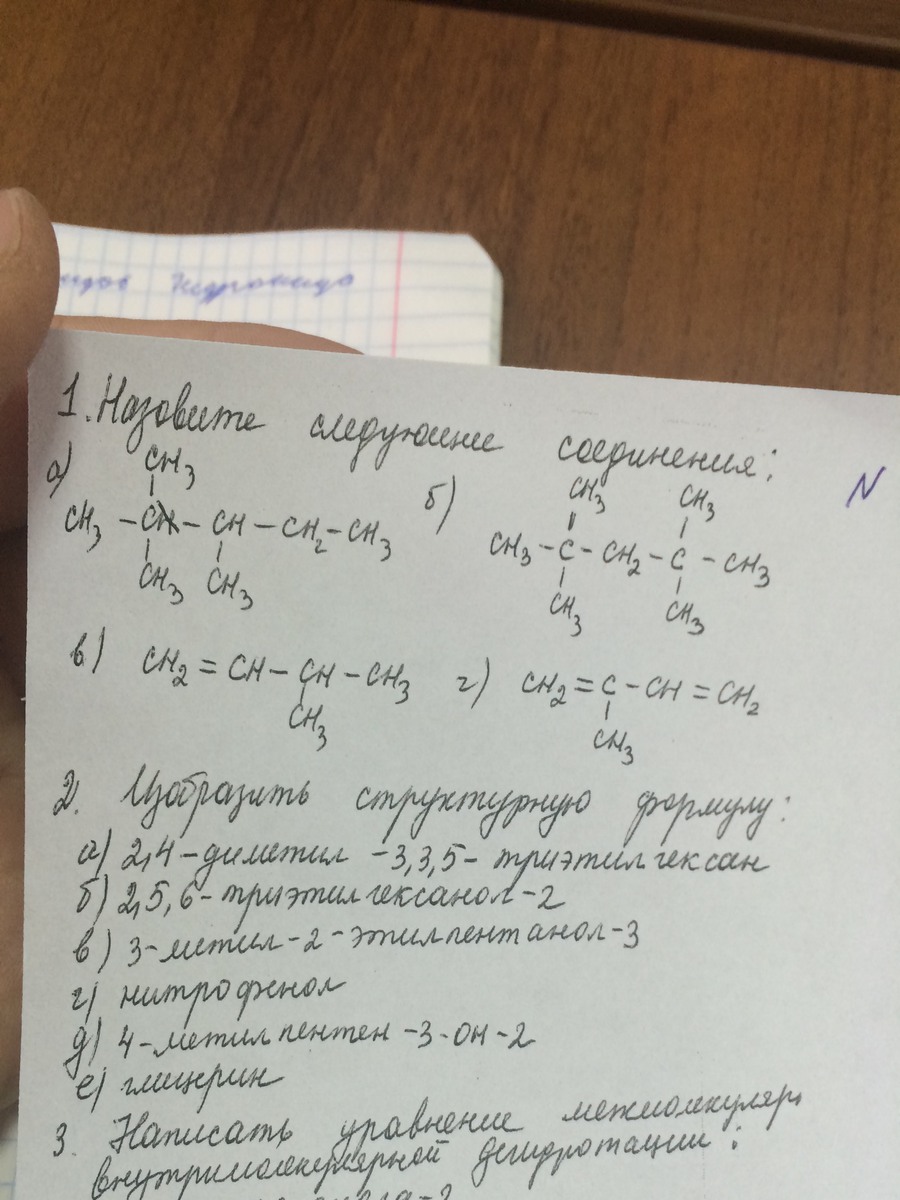 1. Назовите следующие соединения:
а) CH3 б) CH3 CH3 N
CH3 – C – CH – CH2 – CH3 CH3 – C – CH2 – C – CH3
CH3 CH3 CH3 CH3
в) CH2 = CH – CH – CH3 г) CH2 = C – CH = CH2
CH3 CH3
2. Изобразить структурную формулу:
а) 2,4 – диметил – 3,3,5 – триэтилгексан
б) 2,5,6 – триэтилгексанол – 2
в) 3 – метил – 2 – этилпентанол – 3
г) нитрофенол
д) 4 – метилпентен – 3 – он – 2
е) глицерин
3. Написать уравнение межмолекуляр.
внутримолекулярной дегидротации: